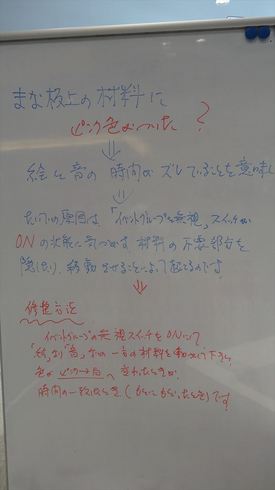 まな板上の材料に
ピンク色がついた?
⇓
絵と音の時間がズレていることを意味し
⇓
原因は、「イベントグループを無視」スイッチが
ONの状態に気づかず材料の不要部分を
移動させることによって起るのです。
⇓
修整方法
イベントグループの無視スイッチをONにして
「絵」なり「音」なりの一方の材料を動かして下さい
色がピンク→白へ変わったときが
時間の一致したとき(です